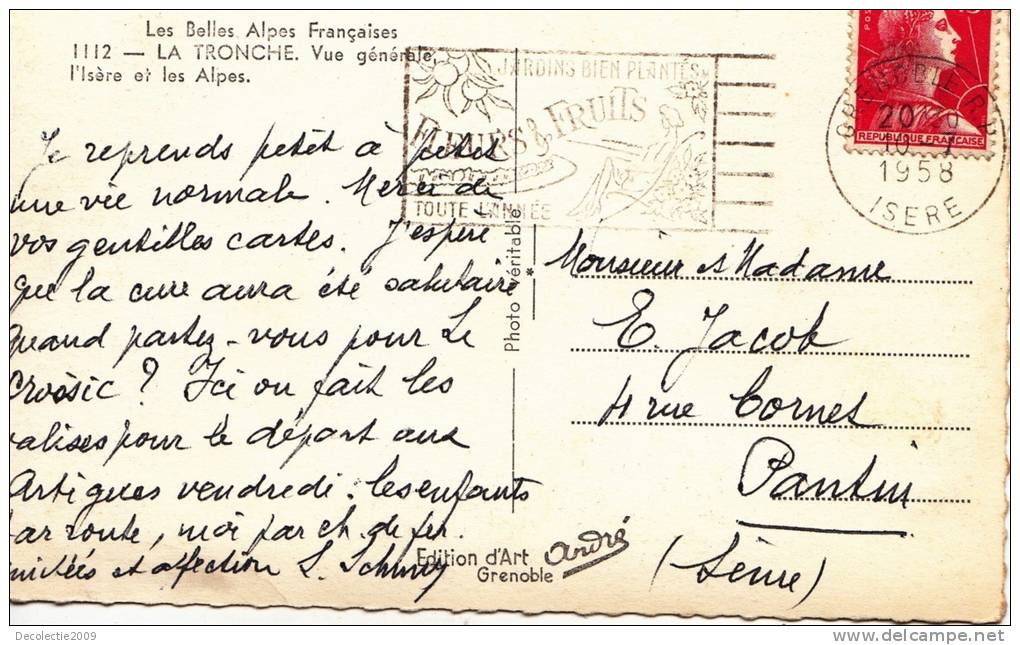 Les Belles Alpes Françaises
1112 — LA TRONCHE. Vue générale,
l'Isère et les Alpes.
JARDINS BIEN PLANTÉS
FLEURS & FRUITS
TOUTE L'ANNÉE
GRENOBLE R.P.
20
10 - 7
1958
ISERE
REPUBLIQUE FRANÇAISE
Je reprends petit à petit
une vie normale. Merci de
vos gentilles cartes. J'espère
que la cure aura été salutaire
quand partez-vous pour Le
Croisic ? Ici on fait les
valises pour le départ aux
Artigues vendredi. les enfants
par route, moi par ch. de fer.
et affection S.
Photo véritable
*
Monsieur et Madame
E. Jacob
4 rue Cornet
Pantin
(Seine)
Edition d'Art
Grenoble
André
Decolectie2009
www.delcampe.net